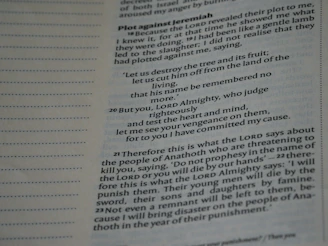 of both Israel and
aroused my anger by burning
Plot against Jeremiah
18 Because the LORD revealed their plot to me,
I knew it, for at that time he showed me what
they were doing. 19 I had been like a gentle lamb
led to the slaughter; I did not realise that they
had plotted against me, saying,
'Let us destroy the tree and its fruit;
let us cut him off from the land of the
living,
that his name be remembered no
more.'
20 But you, LORD Almighty, who judge
righteously
and test the heart and mind,
let me see your vengeance on them,
for to you I have committed my cause.
21 Therefore this is what the LORD says about
the people of Anathoth who are threatening to
kill you, saying, 'Do not prophesy in the name of
the LORD or you will die by our hands' – 22 there-
fore this is what the LORD Almighty says: 'I will
punish them. Their young men will die by the
sword, their sons and daughters by famine.
23 Not even a remnant will be left to them, be-
cause I will bring disaster on the people of Ana-
thoth in the year of their punishment.'
your punishment? / Then you